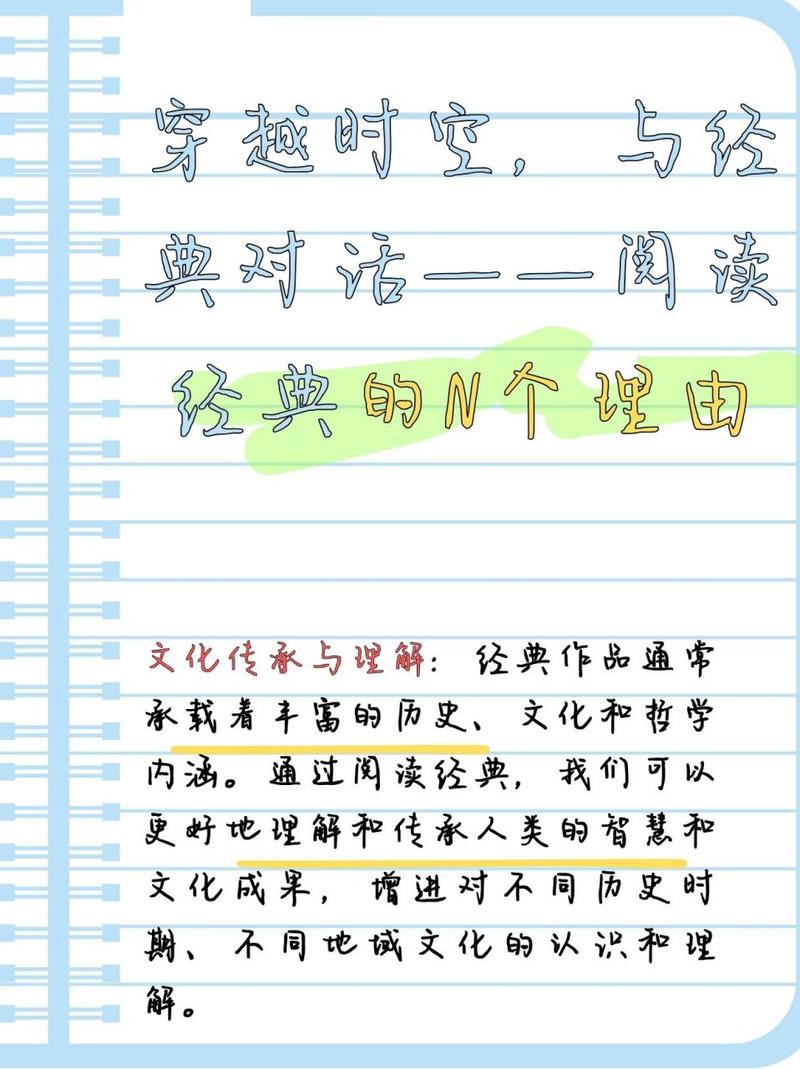 穿越时空，与经
典对话——阅读
经典的N个理由
文化传承与理解：经典作品通常
承载着丰富的历史、文化和哲学
内涵。通过阅读经典，我们可以
更好地理解和传承人类的智慧和
文化成果，增进对不同历史时
期、不同地域文化的认识和理
解。